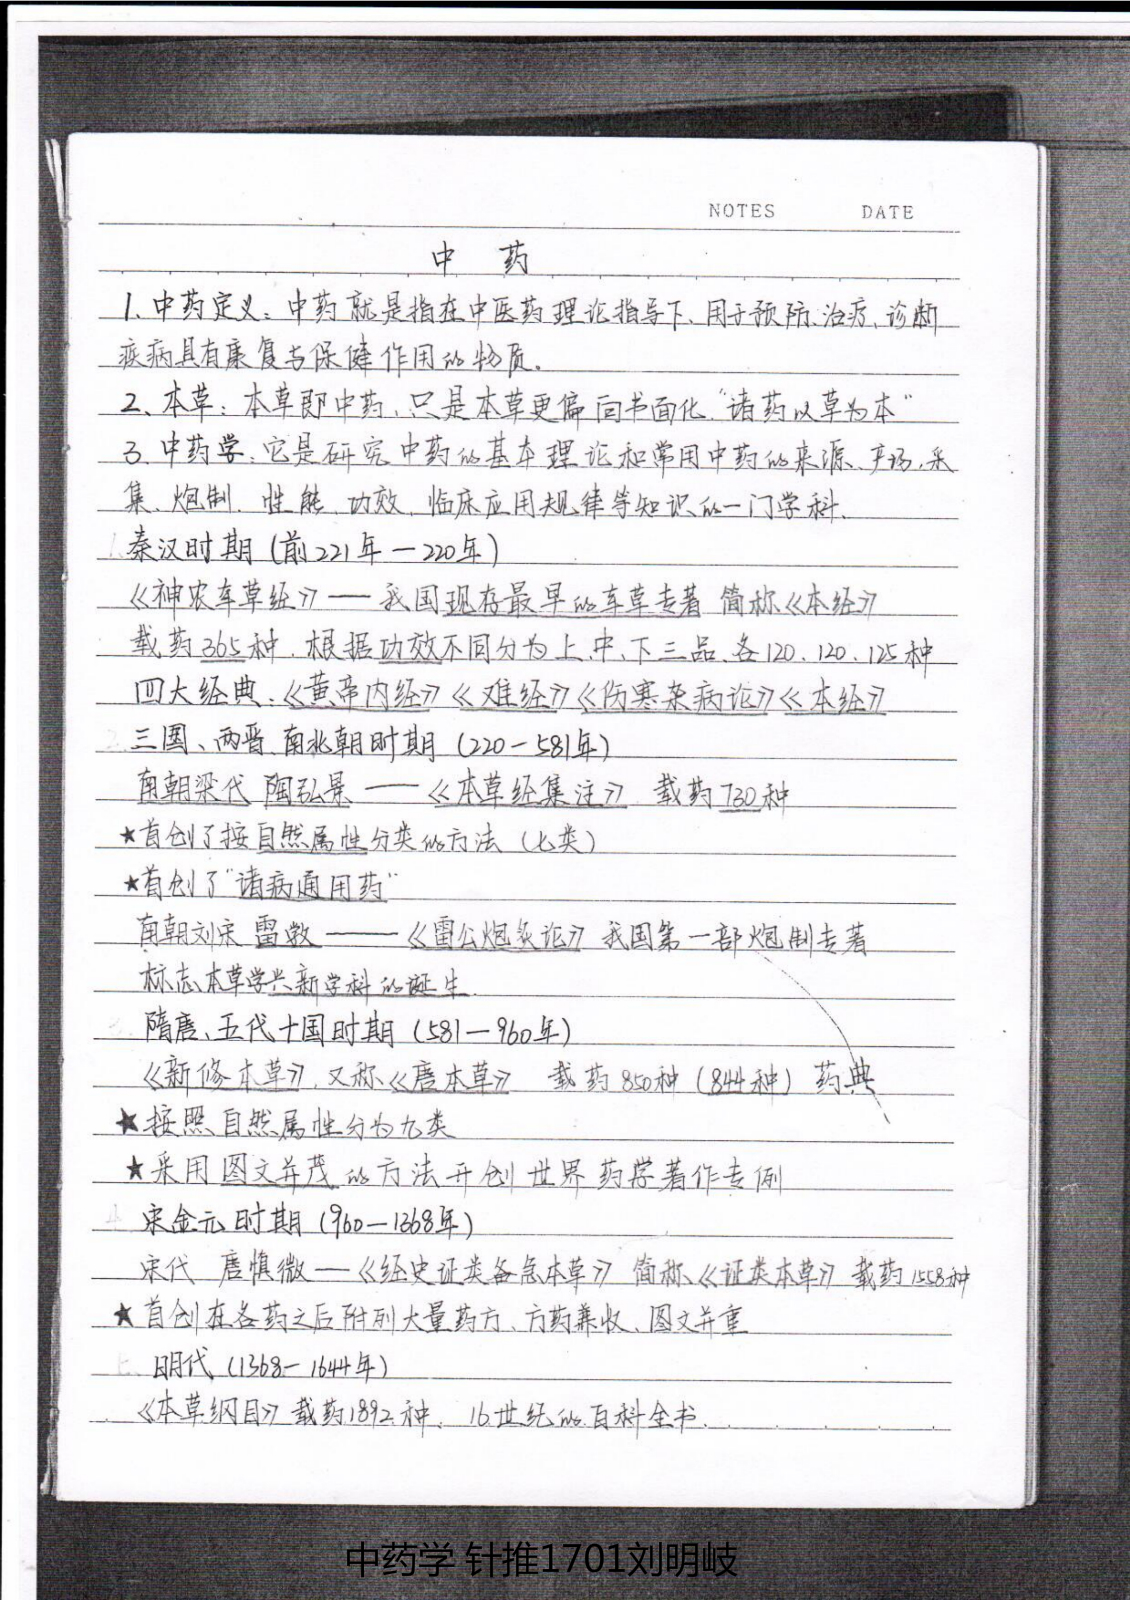 NOTES DATE
中 药
1、中药定义：中药就是指在中医药理论指导下、用于预防、治疗、诊断
疾病具有康复与保健作用的物质。
2、本草：本草即中药，只是本草更偏向书面化 "诸药以草为本"
3、中药学：它是研究中药的基本理论和常用中药的来源、产地、采
集、炮制、性能、功效、临床应用规律等知识的一门学科、
1.秦汉时期（前221年－220年）
《神农本草经》—— 我国现存最早的本草专著 简称《本经》
载药365种、根据功效不同分为上、中、下三品、各120、120、125种
四大经典：《黄帝内经》《难经》《伤寒杂病论》《本经》
2.三国、两晋、南北朝时期（220－581年）
南朝梁代 陶弘景 ——《本草经集注》 载药730种
★首创了按自然属性分类的方法（七类）
★首创了"诸病通用药"
南朝刘宋 雷敩 ——《雷公炮炙论》 我国第一部炮制专著
标志本草学兴新学科的诞生
3.隋唐、五代十国时期（581－960年）
《新修本草》、又称《唐本草》 载药850种（844种） 药典
★按照自然属性分为九类
★采用图文并茂的方法开创世界药学著作专例
4.宋金元时期（960－1368年）
宋代 唐慎微——《经史证类备急本草》 简称《证类本草》 载药1558种
★首创在各药之后附列大量药方、方药兼收、图文并重
明代（1368－1644年）
《本草纲目》载药1892种、16世纪的百科全书
中药学 针推1701刘明岐